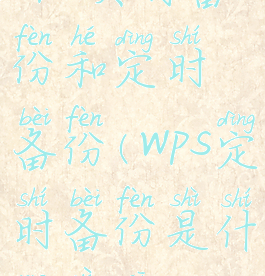 fèn hé dìng shí
份和定时
bèi fèn dìng
备份(WPS定
shí bèi fèn shì shí
时备份是什